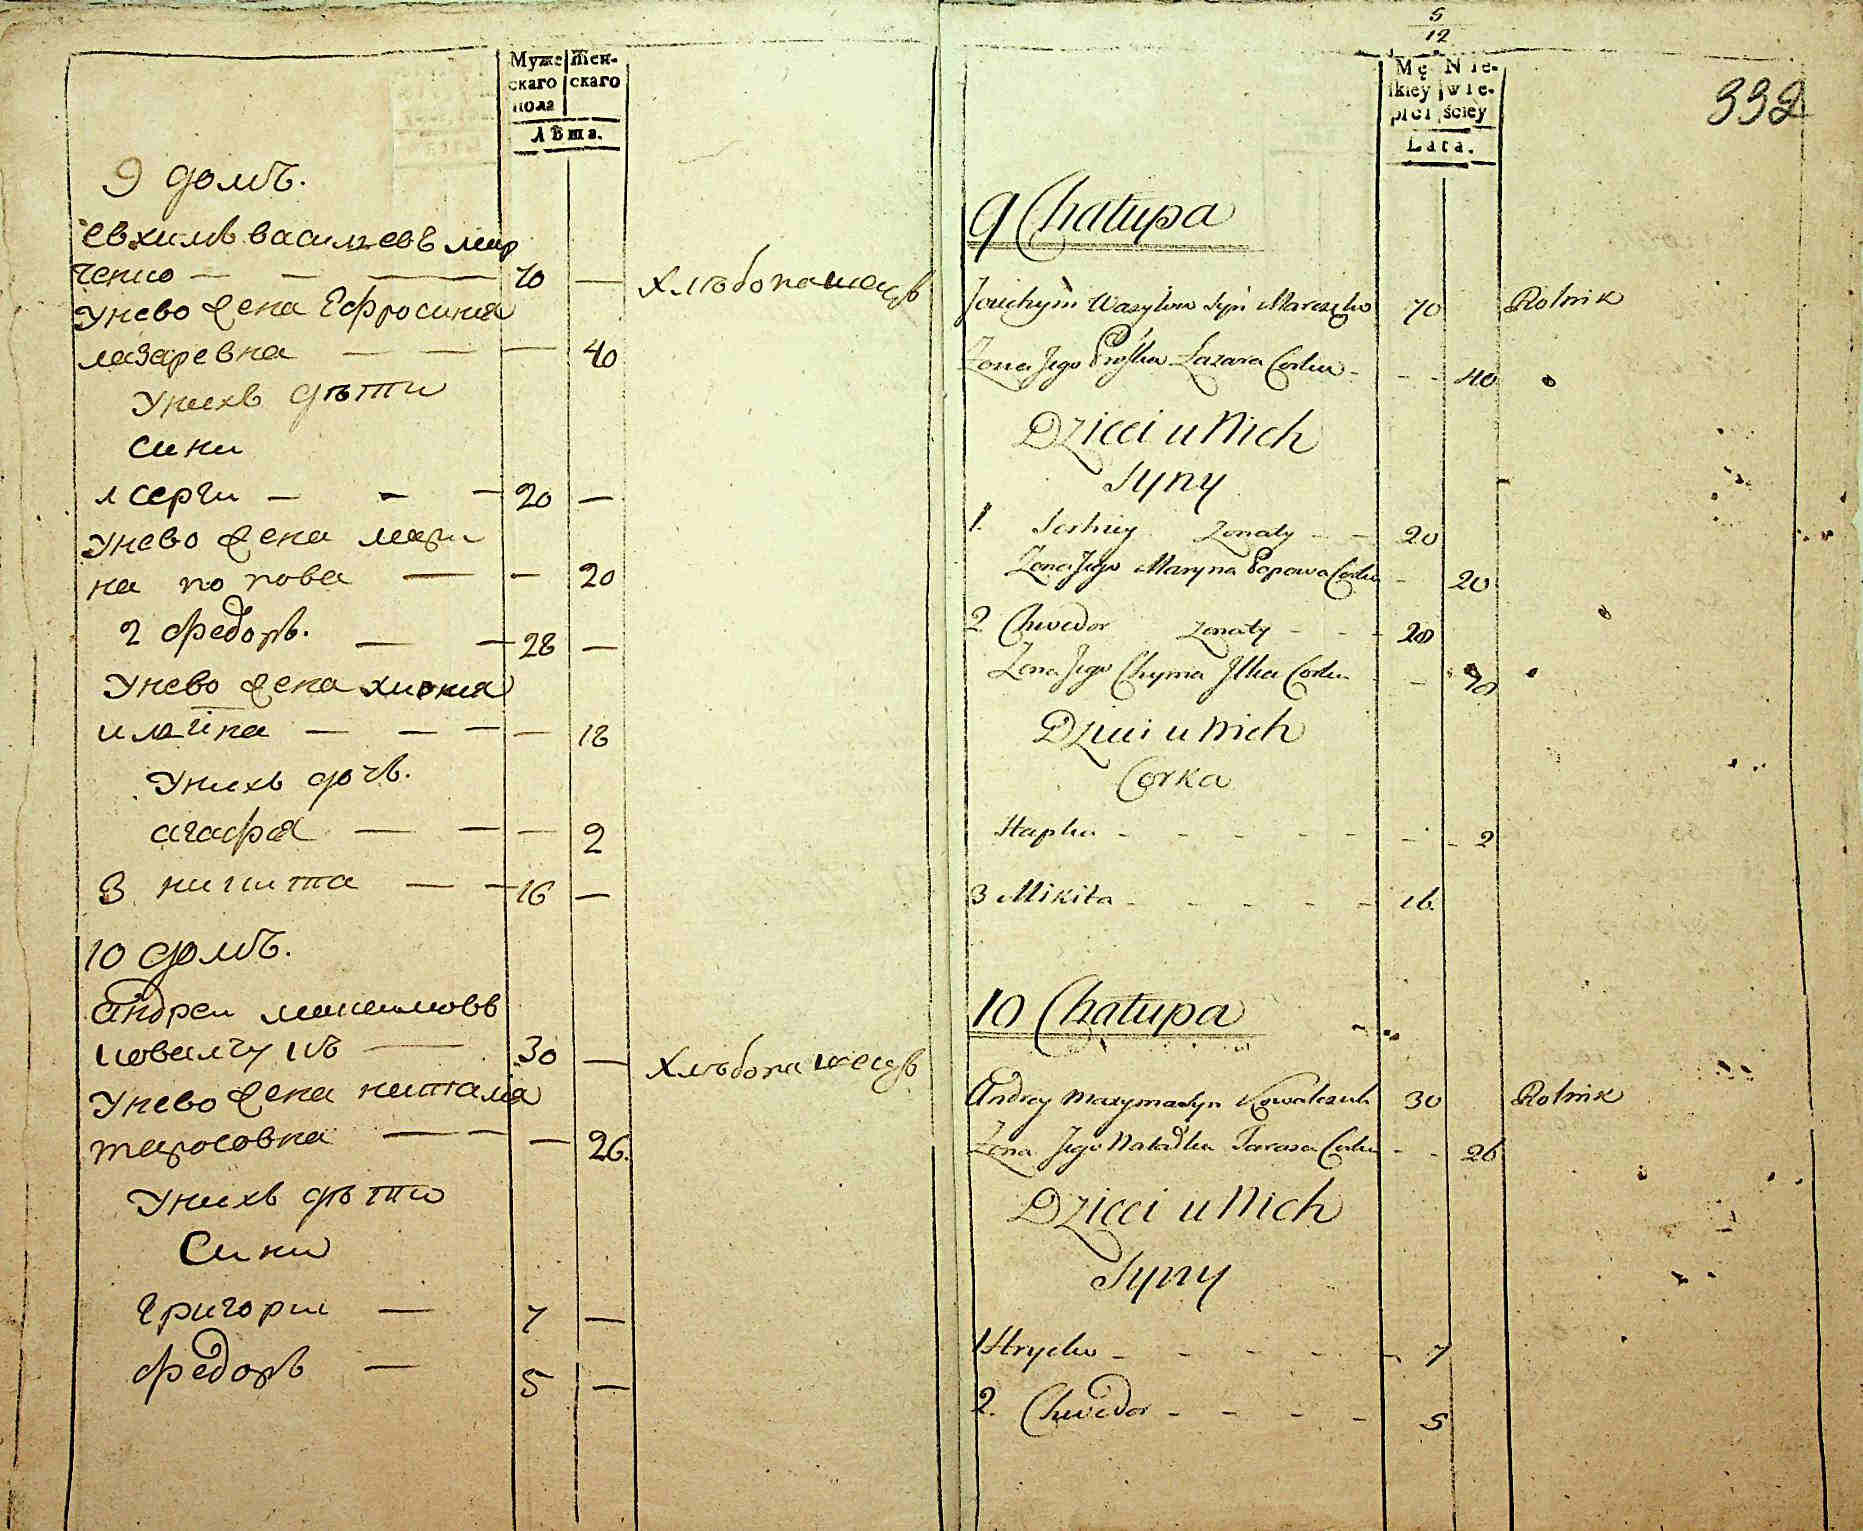 Муже- скаго пола
Жен- скаго
Лѣта.
9 домъ.
Евхимъ васильевъ мар
ченко — — — 70 — хлѣбопашецъ
унево жена Ефросиния
лазаревна — — — 40
унихъ дѣти
сини
1 серги — — — 20 —
унево жена мари
на попова — — 20
2 федоръ. — — 28 —
унево жена хивния
илгина — — — — 18
унихъ дочъ.
агафия — — — 2
3 никита — — 16 —
10 домъ.
андреи максимовъ
ковалчукъ — 30 — хлѣбопашецъ
унево жена наталия
тарасовна — — — 26.
унихъ дѣти
Сини
григории — 7 —
федоръ — 5 —
5
12
332
Mę ſkiey płci
Nie- wie- ściey
Lata.
9 Chałupa
Jouchym Wasylow Syn Marczęko 70 Rolnik
Zona Jego Proſka Łazara Corka - - - 40
Dzieci u Nich
Syny
1. Serhiey Zonaty - - 20
Zona Jego Maryna Popowa Corka - 20
2 Chwedor Zonaty - - - 28
Zona Jego Chyma Jlka Corka - -
Dzieci u Nich
Corka
Hapka - - - - - - - - 2
3 Mikita - - - - - 16.
10 Chałupa
Andrey Maxyma Syn Kowalczuk 30 Rolnik
Zona Jego Natałka Tarasa Corka - - 26
Dzieci u Nich
Syny
1 Hryćko - - - - - - 7
2. Chwedor - - - - 5